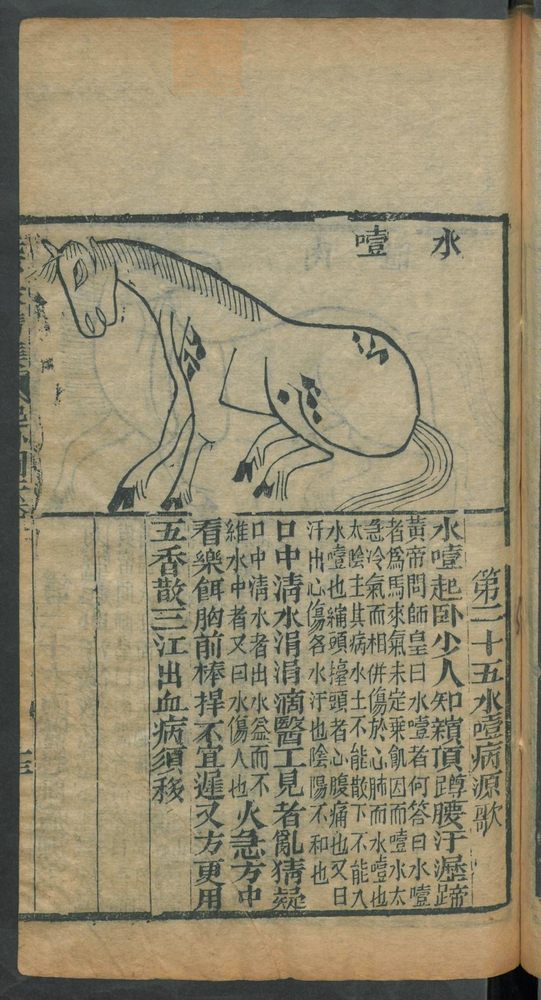 水噎
第二十五水噎病源歌
水噎起卧少人知顙頂蹲腰汗濕蹄
黃帝問師皇曰水噎者何答曰水噎
者爲馬來氣未定乗飢因而噎水太
急冷氣而相併傷於心肺而水噎也
太隂主其病水土不能散下不能入
水噎也縮頭擡頭者心腹痛也又曰
汗出心傷各水汗也隂陽不和也
口中清水涓涓滴醫工見者亂猜疑
口中清水者出水益而不
維水中者又曰水傷人也
火急方中
看藥餌胸前棒捍不宜遲又方更用
五香散三江出血病須移